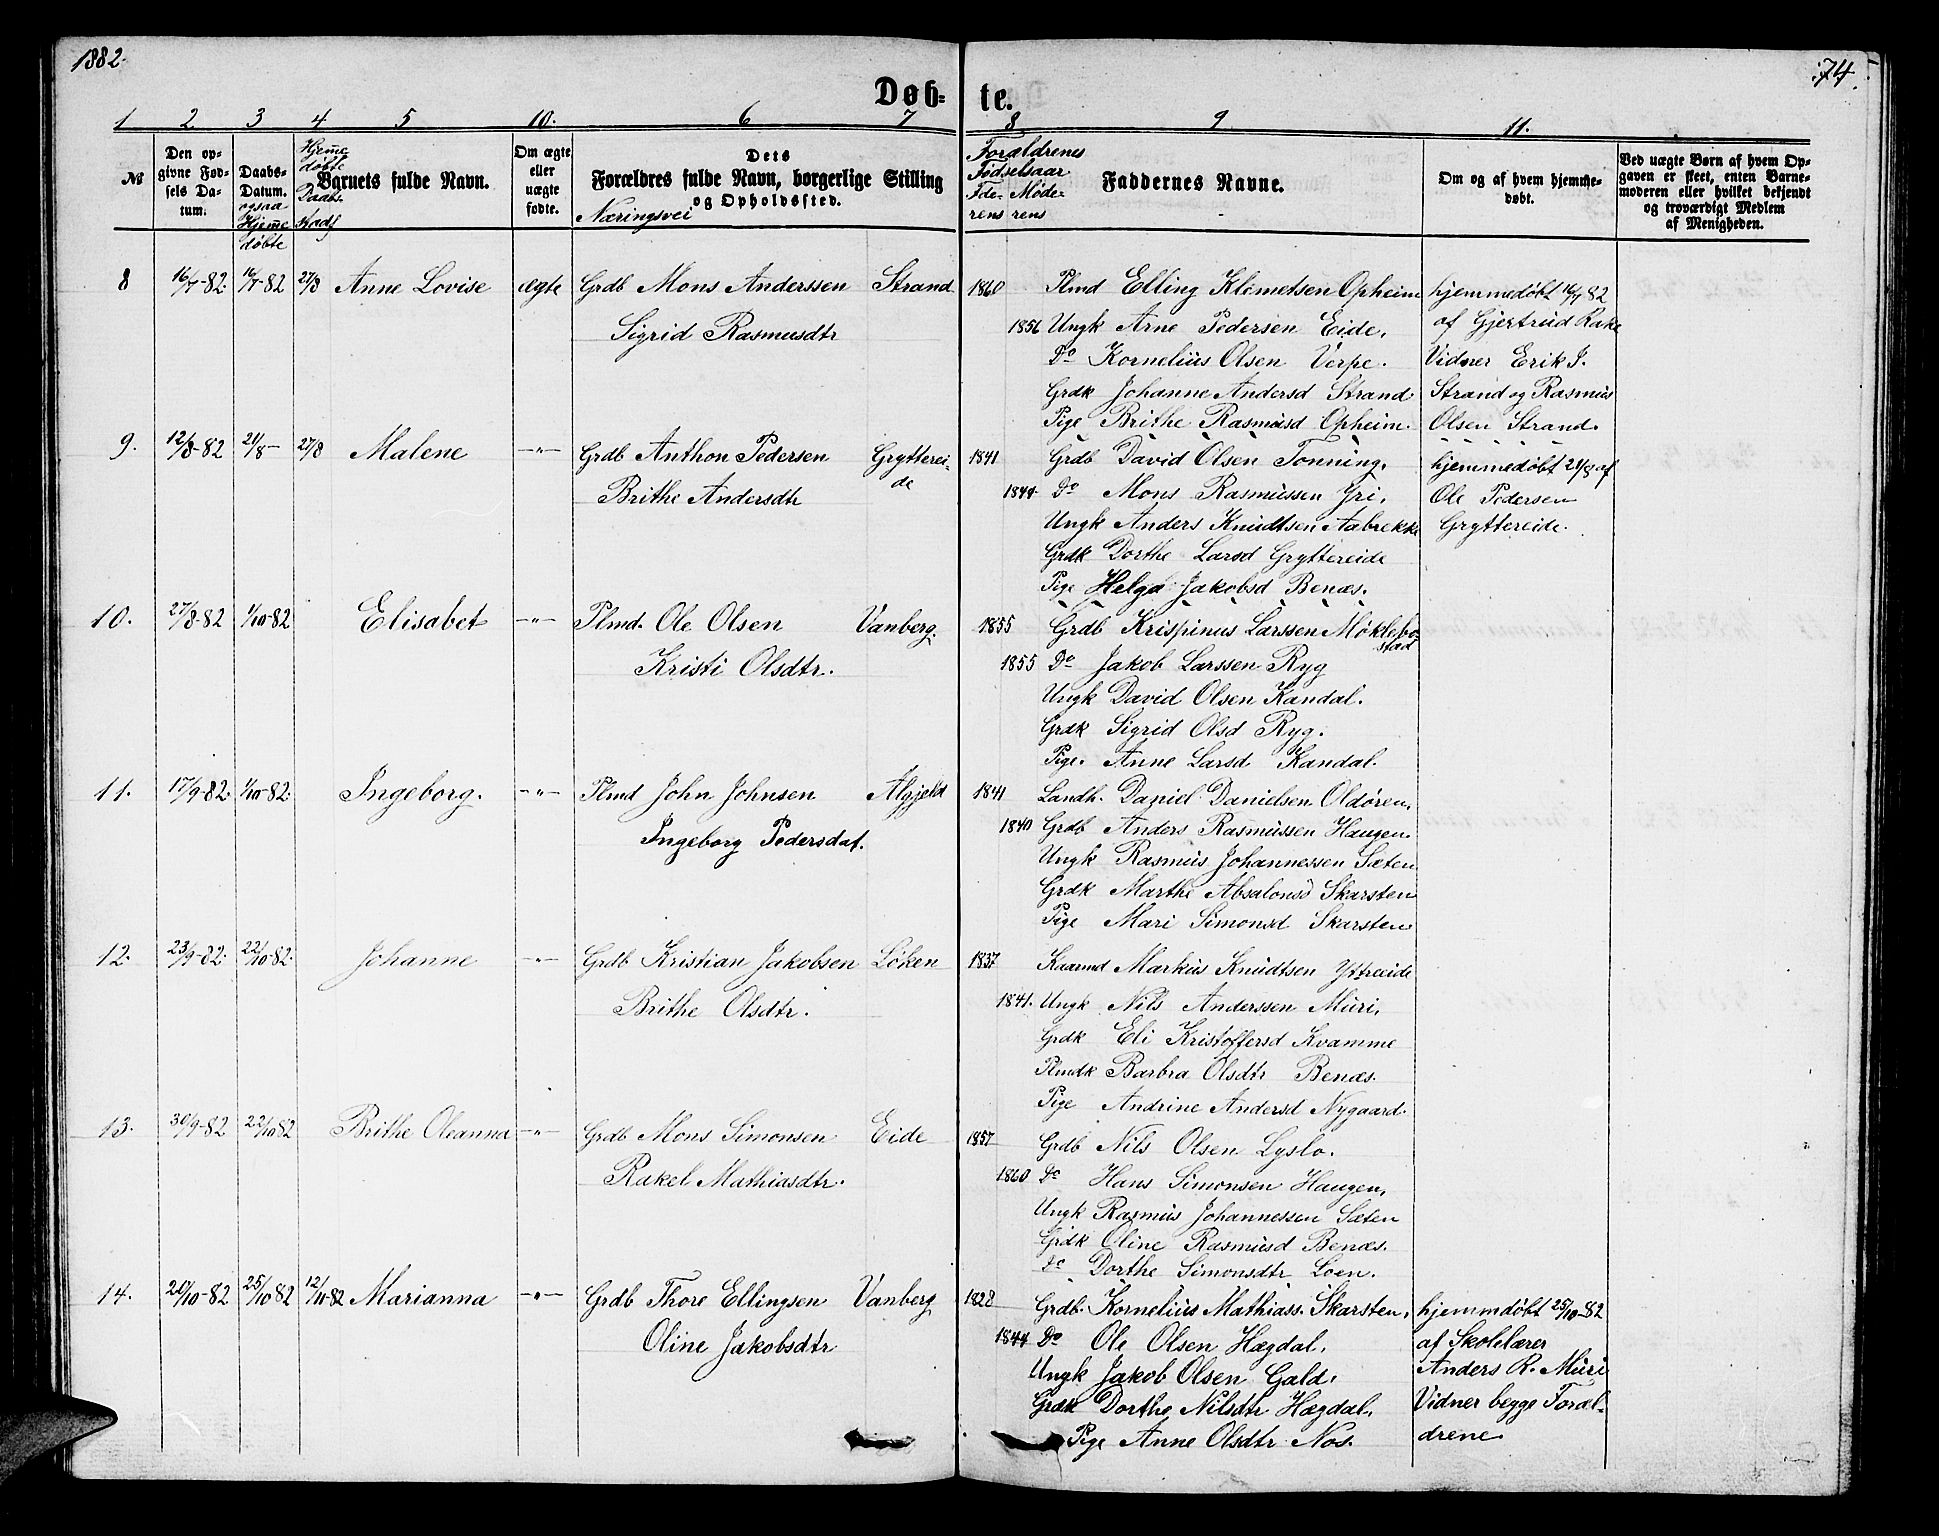 1882.
74.
Døb-
te.
1 2 3 4 5 10. 6 7 8 9 11.
№
Den op-
givne Fød-
sels Da-
tum.
Daabs-
Datum.
ogsaa
Hjem̄e
døbte
Hjem̄e
døbte
Daabs.
Stadf
Barnets fulde Navn.
Om ægte
eller
uægte
fødte.
Dets
Forældres fulde Navn, borgerlige Stilling
og Opholdssted.
Næringsvei
Forældrenes
Fødselsaar
Fde- Møde-
rens rens
Faddernes Navne.
Om og af hvem hjemme-
døbt.
Ved uægte Børn af hvem Op-
gaven er skeet, enten Barne-
moderen eller hvilket bekjendt
og troværdigt Medlem
af Menigheden.
8 16/7-82. 16/7-82 27/8 Anne Lovise ægte Grdb Mons Anderssen Strand 1860 Plmd Elling Klemetsen Opheim hjemmedøbt 16/7 82
Sigrid Rasmusdtr 1856 Ungk Arne Pedersen Eide. af Gjertrud Rake
Do Kornelius Olsen Verpe. Vidner Erik J.
Grdk Johanne Andersd Strand Strand og Rasmus
Pige Brithe Rasmusd Opheim. Olsen Strand.
9. 12/8-82 21/8- 27/8 Malene -"- Grdb Anthon Pedersen Grytterei- 1841 Grdb David Olsen Tonning. hjemmedøbt 21/8 af
de
Brithe Andersdtr 1844. Do Mons Rasmussen Yri. Ole Pedersen
Ungk Anders Knudtsen Aabrekke Gryttereide.
Grdk Dorthe Larsd Gryttereide
Pige Helga Jakobsd Benæs.
10. 27/8-82 1/10-82 Elisabet -"- Plmd. Ole Olsen Vanberg. 1855 Grdb Krispinus Larssen Møklebo-
stad
Kristi Olsdtr. 1855 Do Jakob Larssen Ryg
Ungk David Olsen Kandal.
Grdk Sigrid Olsd Ryg.
Pige. Anne Larsd Kandal.
11. 17/9-82. 1/10-82. Ingeborg. -"- Plmd John Johnsen Algjeld 1841 Landh. Daniel Danielsen Oldøren.
Ingeborg Pedersdat. 1840 Grdb Anders Rasmussen Haugen.
Ungk Rasmus Johannessen Sæten
Grdk Marthe Absalonsd Skarsten
Pige Mari Simonsd Skarsten
12. 23/9-82. 22/10-82. Johanne -"- Grdb Kristian Jakobsen Løken 1837 Kaarmd Markus Knudtsen Yttreeide
Brithe Olsdtr. 1841. Ungk Nils Anderssen Muri.
Grdk Eli Kristoffersd Kvamme
Plmdk Barbra Olsdtr Benæs.
Pige Andrine Andersd Nygaard.
13. 30/9-82 22/10 82 Brithe Oleanna -"- Grdb Mons Simonsen Eide 1857 Grdb Nils Olsen Lyslo.
Rakel Mathiasdtr. 1860 Do Hans Simonsen Haugen.
Ungk Rasmus Johannessen Sæten
Grdk Oline Rasmusd Benæs.
Do Dorthe Simonsdtr Loen.
14. 20/10-82 25/10 82 12/11-82 Marianna -"- Grdb Thore Ellingsen Vanberg 1828 Grdb. Kornelius Mathiass. Skarsten. hjemmdøbt 25/10-82
Oline Jakobsdtr 1844 Do Ole Olsen Hægdal. af Skolelærer
Ungk Jakob Olsen Gald. Anders R. Muri
Grdk Dorthe Nilsdtr Hægdal. Vidner begge Foræl-
Pige Anne Olsdtr Nos. drene